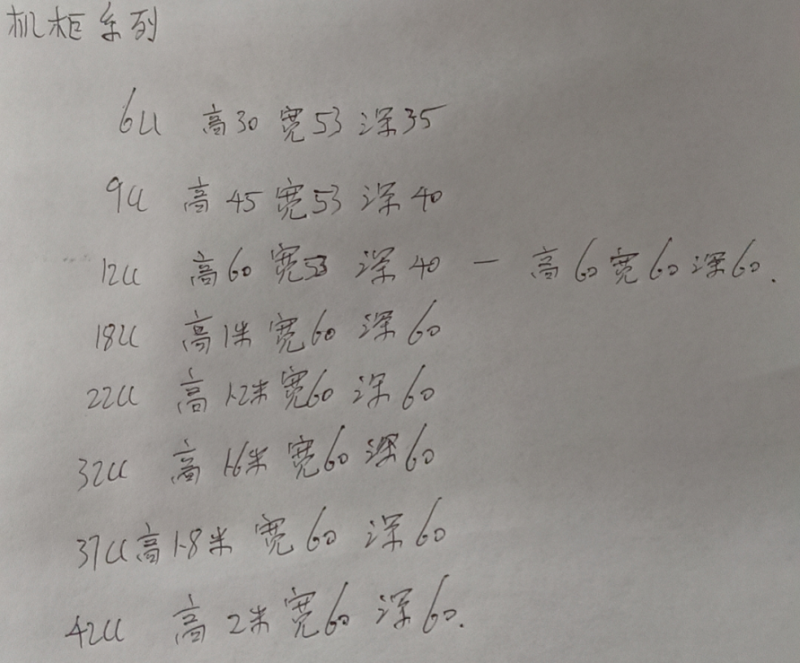 机柜系列
6U 高30 宽53 深35
9U 高45 宽53 深40
12U 高60 宽53 深40 — 高60宽60深60.
18U 高1米 宽60 深60
22U 高1.2米 宽60 深60
32U 高1.6米 宽60 深60
37U 高1.8米 宽60 深60
42U 高2米 宽60 深60.